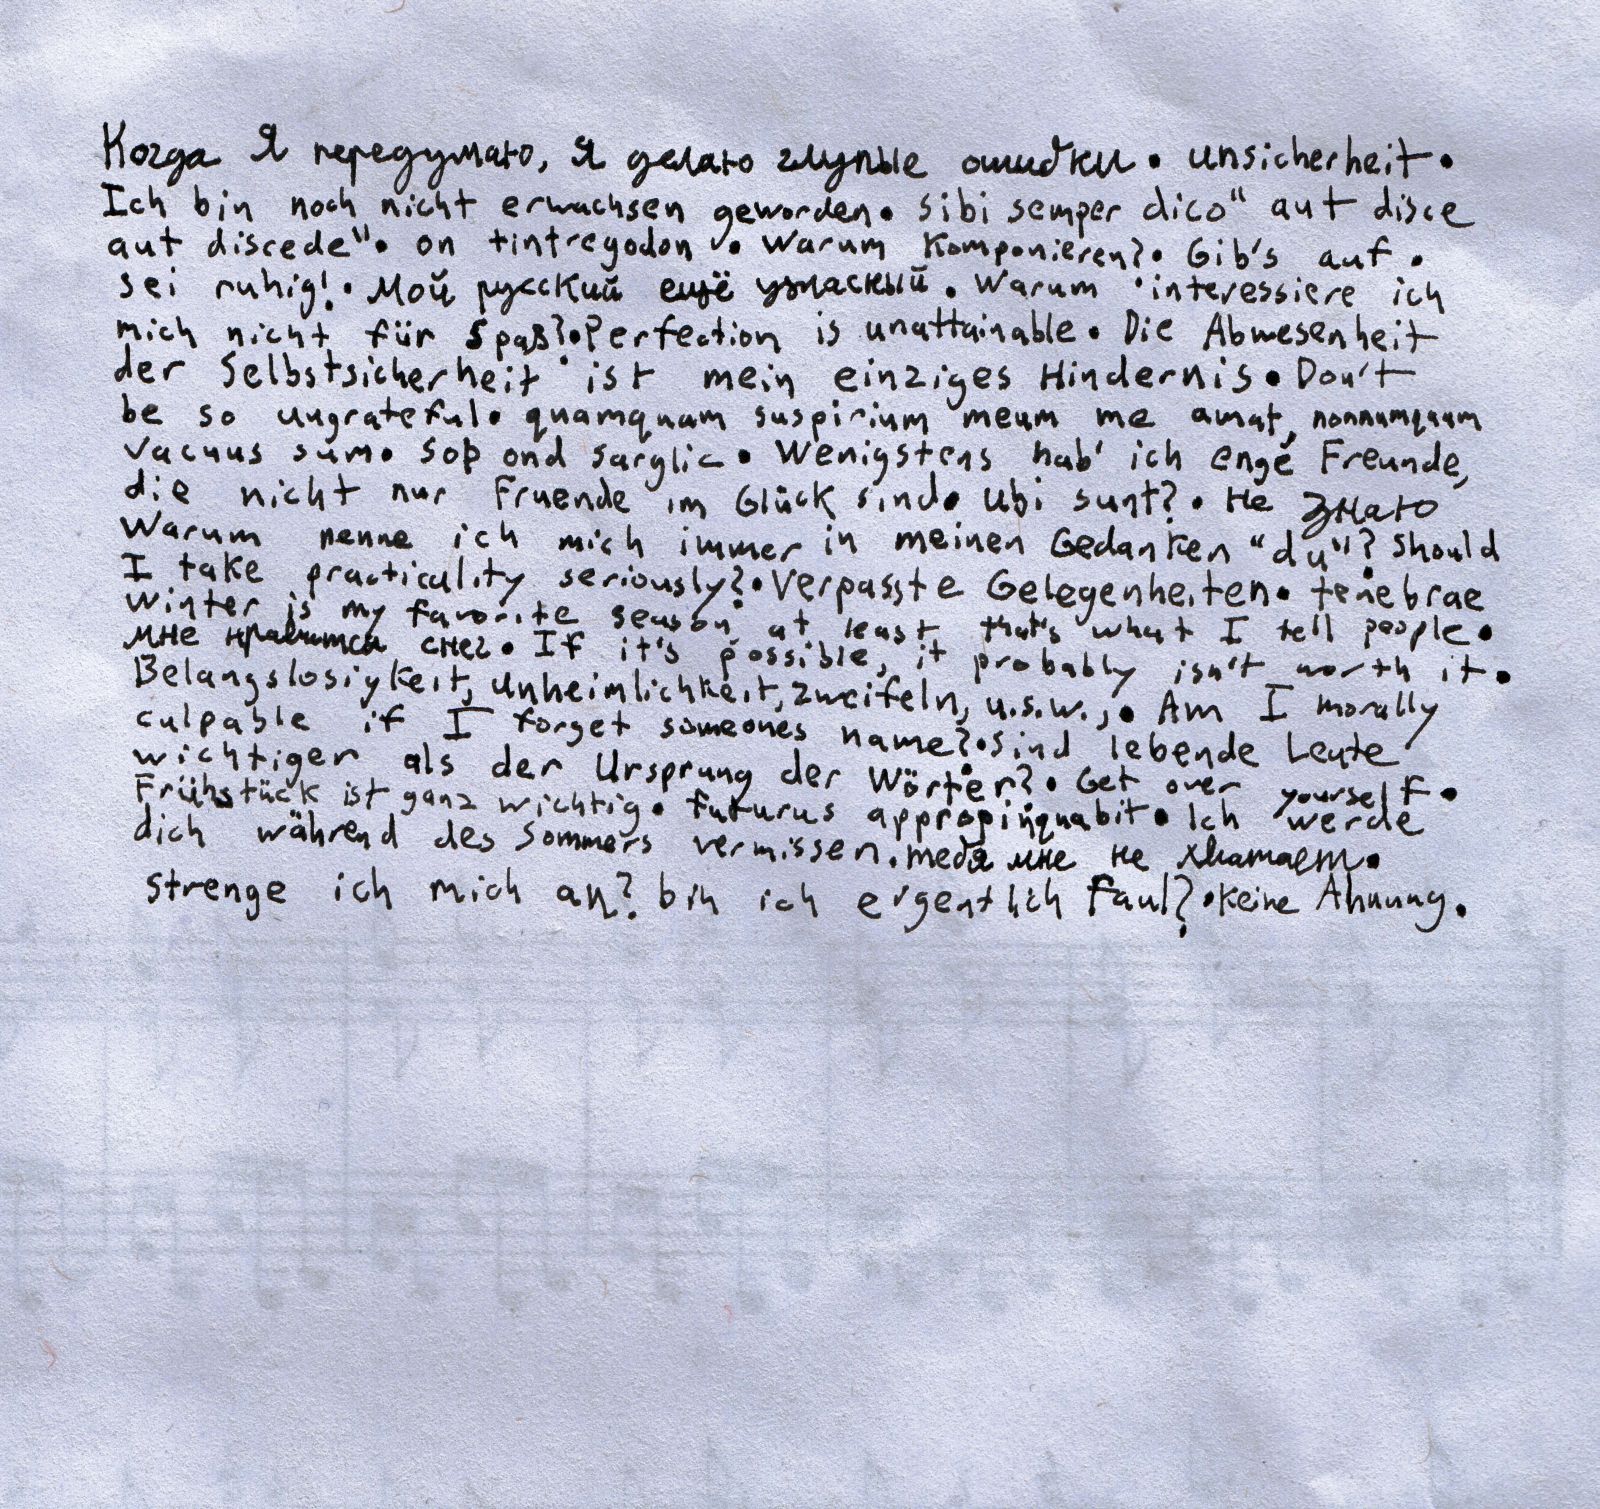 Когда Я передумаю, Я делаю глупые ошибки • unsicherheit •
Ich bin noch nicht erwachsen geworden • sibi semper dico "aut disce
aut discede" • on tintregodon • Warum Komponieren? • Gib's auf •
sei ruhig! • Мой русский ещё ужасный • Warum interessiere ich
mich nicht für Spaß? • Perfection is unattainable • Die Abwesenheit
der Selbstsicherheit ist mein einziges Hindernis • Don't
be so ungrateful • quamquam suspirium meum me amat, nonnumquam
vacuus sum • Soþ ond sarglic • Wenigstens hab' ich enge Freunde,
die nicht nur Fruende im Glück sind • Ubi sunt? • Не знаю
Warum nenne ich mich immer in meinen Gedanken "du"? Should
I take practicality seriously? • Verpasste Gelegenheiten • tenebrae
Winter is my favorite season at least that's what I tell people •
мне нравится снег • If it's possible, it probably isn't worth it •
Belangslosigkeit, Unheimlichkeit, zweifeln, u.s.w., • Am I morally
culpable if I forget someones name? • sind lebende Leute
wichtiger als der Ursprung der Wörter? • Get over yourself •
Frühstück ist ganz wichtig • futurus appropinquabit • Ich werde
dich während des Sommers vermissen • тебя мне не хватает •
strenge ich mich an? bin ich eigentlich faul? • Keine Ahnung.